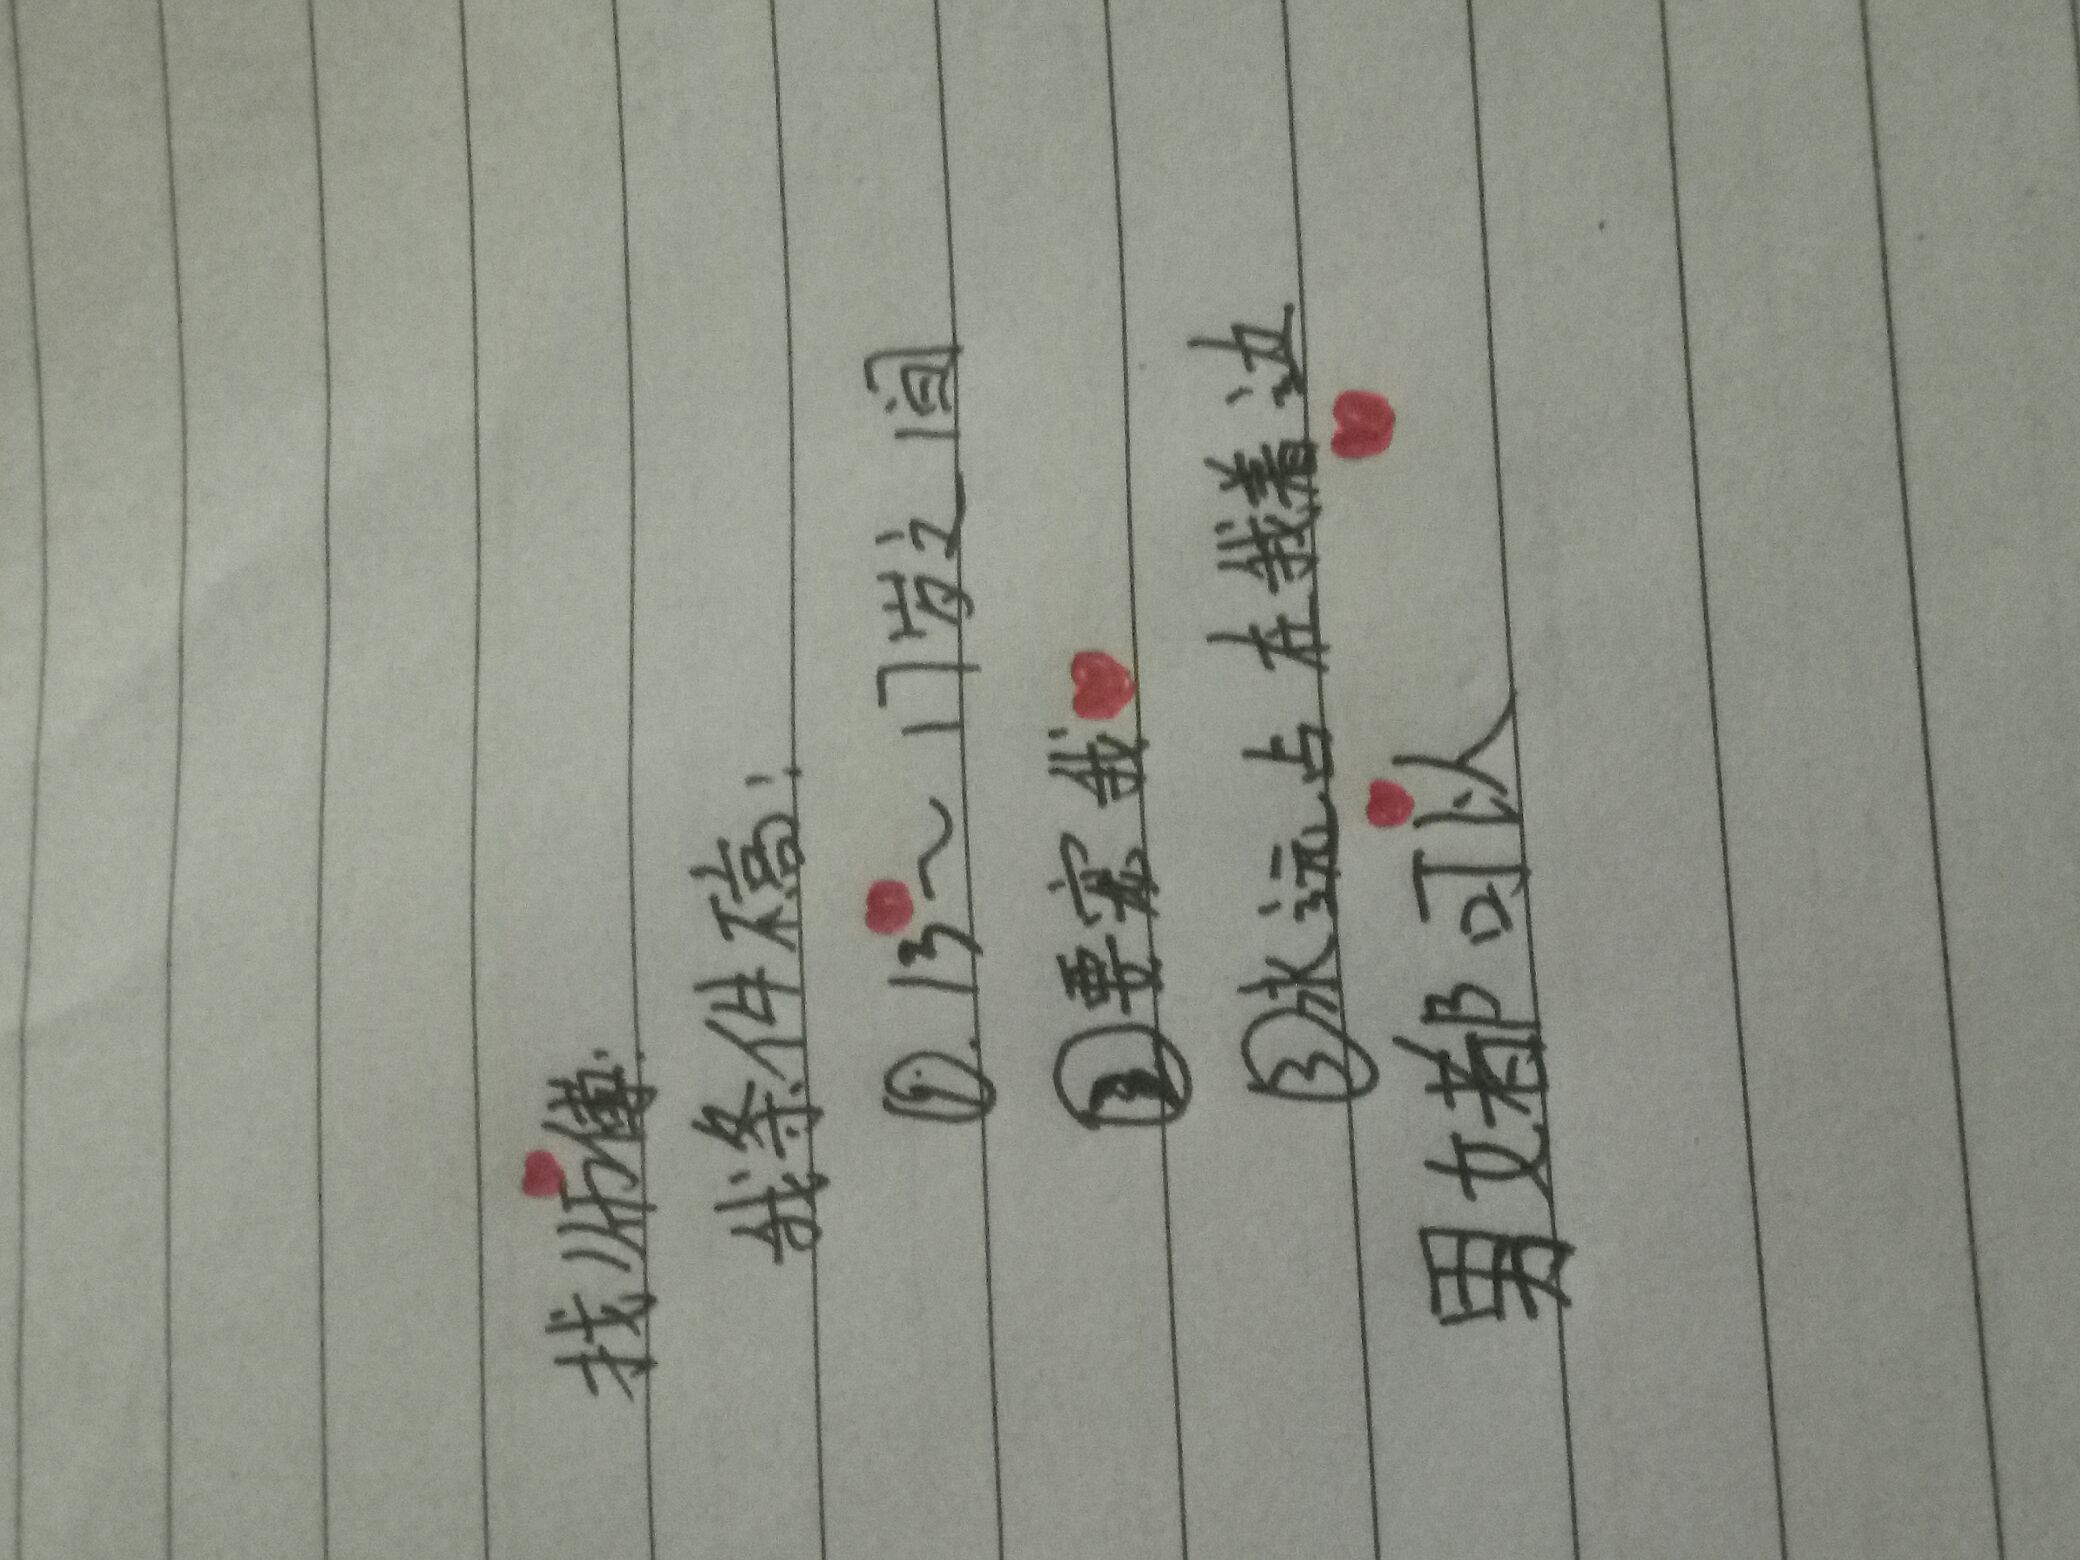 找师傅.
我条件不高:
①.13～17岁之间
②要宠我
③永远占在我着边
男女都可以